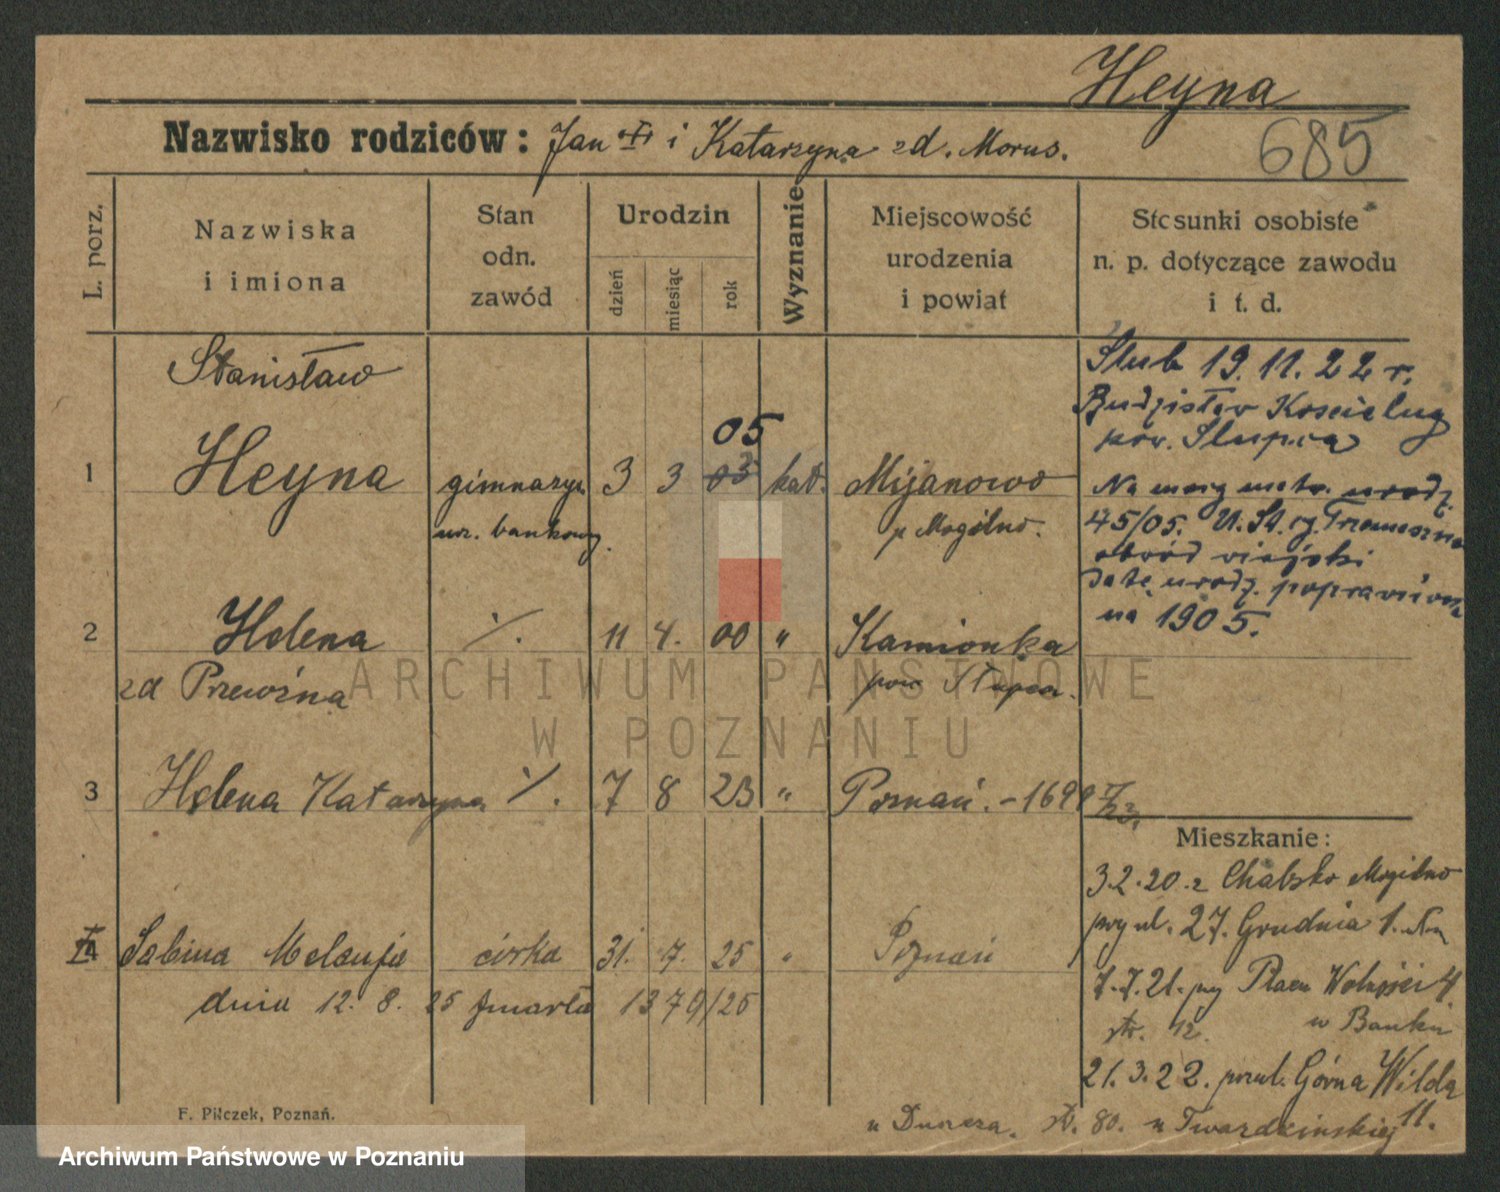 Heyna
685
Nazwisko rodziców: Jan i Katarzyna zd. Morus.
L. porz.
Nazwiska i imiona
Stan odn. zawód
Urodzin
dzień
miesiąc
rok
Wyznanie
Miejscowość urodzenia i powiat
Stosunki osobiste n. p. dotyczące zawodu i t. d.
Stanisław
05
1 Heyna gimnazja. 3 3 03 kat. Mijanowo
urz. bankowy. p Mogilno.
Ślub 19. 11. 22 r.
Budzisław Kościelny
pow. Słupca
Na mocy metr. urodz.
45/05. U. St. Trzemeszno
obwód wiejski
Datę urodz. poprawiono
na 1905.
2 Helena % 11 4. 00 " Kamionka
zd Przewoźna pow Słupca.
3 Helena Katarzyna % 7 8 23 " Poznań. - 1699
4 Sabina Melanja córka 31. 7. 25 " Poznań
dnia 12. 8. 25 zmarła 1379/25
Mieszkanie:
3.2.20. z Chabsko Mogilno
przy ul. 27. Grudnia 1.
7.7.21. przy Placu Wolności 4.
str. 12. w Banku
21.3.22. przy ul. Górna Wilda
str. 80. u Twardzińskiej 11.
F. Pilczek, Poznań.
ARCHIWUM PAŃSTWOWE
W POZNANIU
Archiwum Państwowe w Poznaniu